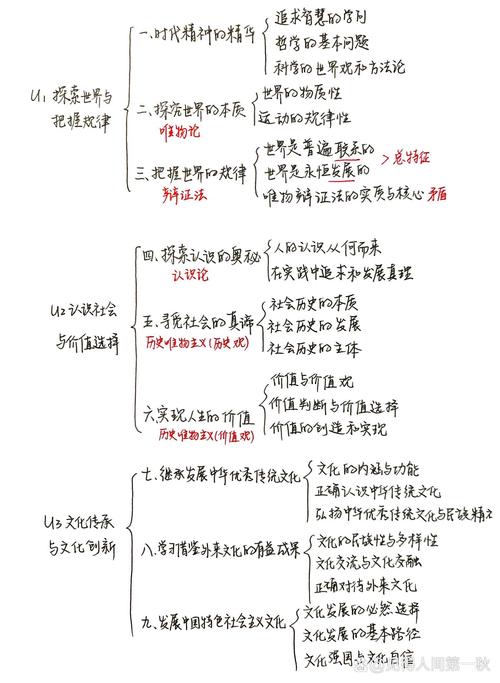 U1 探索世界与
把握规律
一、时代精神的精华
追求智慧的学问
哲学的基本问题
科学的世界观和方法论
二、探究世界的本质
唯物论
世界的物质性
运动的规律性
三、把握世界的规律
辩证法
世界是普遍联系的
世界是永恒发展的
>总特征
唯物辩证法的实质与核心 矛盾
U2 认识社会
与价值选择
四、探索认识的奥秘
认识论
人的认识从何而来
在实践中追求和发展真理
五、寻觅社会的真谛
历史唯物主义(历史观)
社会历史的本质
社会历史的发展
社会历史的主体
六、实现人生的价值
历史唯物主义(价值观)
价值与价值观
价值判断与价值选择
价值的创造和实现
U3 文化传承
与文化创新
七、继承发展中华优秀传统文化
文化的内涵与功能
正确认识中华传统文化
弘扬中华优秀传统文化与民族精
八、学习借鉴外来文化的有益成果
文化的民族性与多样性
文化交流与文化交融
正确对待外来文化
九、发展中国特色社会主义文化
文化发展的必然选择
文化发展的基本路径
文化强国与文化自信
人间第一秋